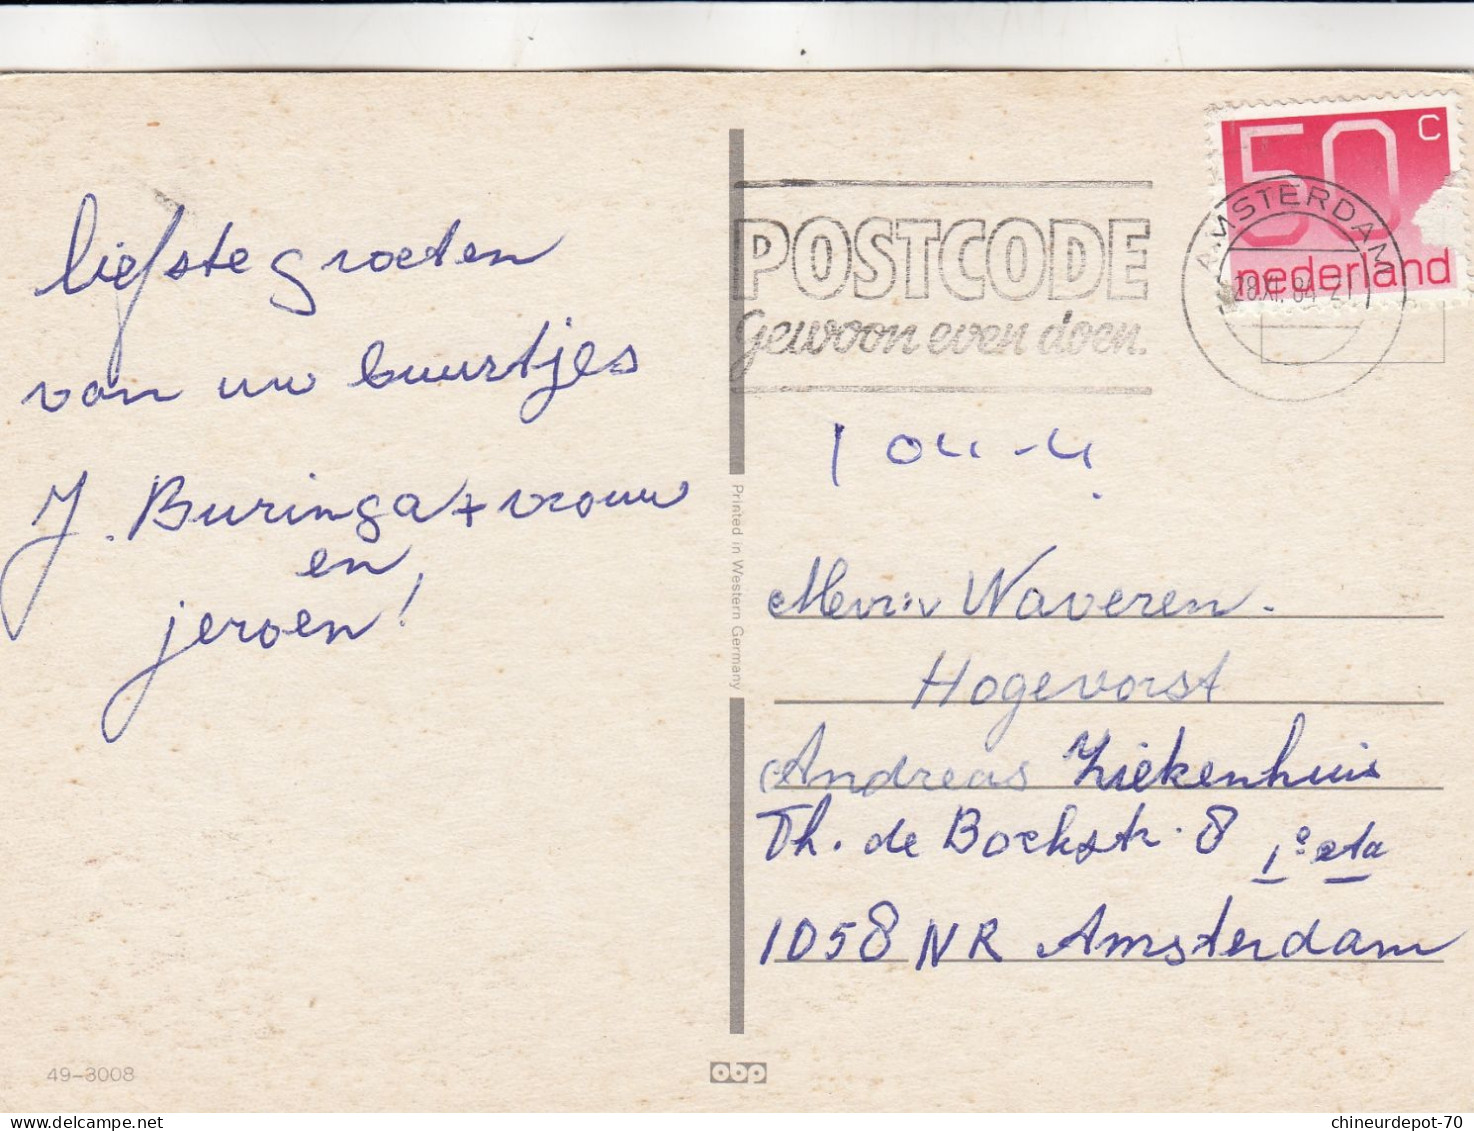 liefste groeten
van uw buurtjes
J. Buringa + vrouw
en
jeroen!
49-3008
Printed in Western Germany
obp
POSTCODE
Gewoon even doen.
AMSTERDAM
28.XI.84 21
50 c
nederland
Hogevorst
Waveren.
Andreas Ziekenhuis
Th. de Bockstr. 8 1e eta
1058 NR Amsterdam
chineurdepot-70